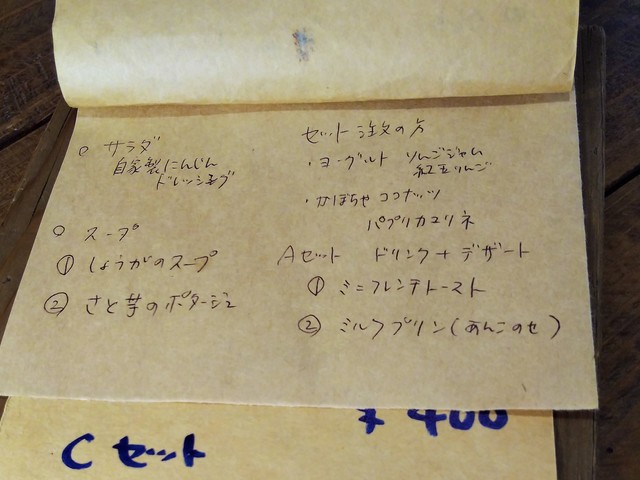 ○ サラダ
自家製にんじん
ドレッシング
○ スープ
① しょうがのスープ
② さと芋のポタージュ
セット注文の方
・ヨーグルト りんごジャム
紅玉りんご
・かぼちゃココナッツ
パプリカマリネ
Aセット ドリンク+デザート
① ミニフレンチトースト
② ミルクプリン(あんこのせ)
¥400
Cセット